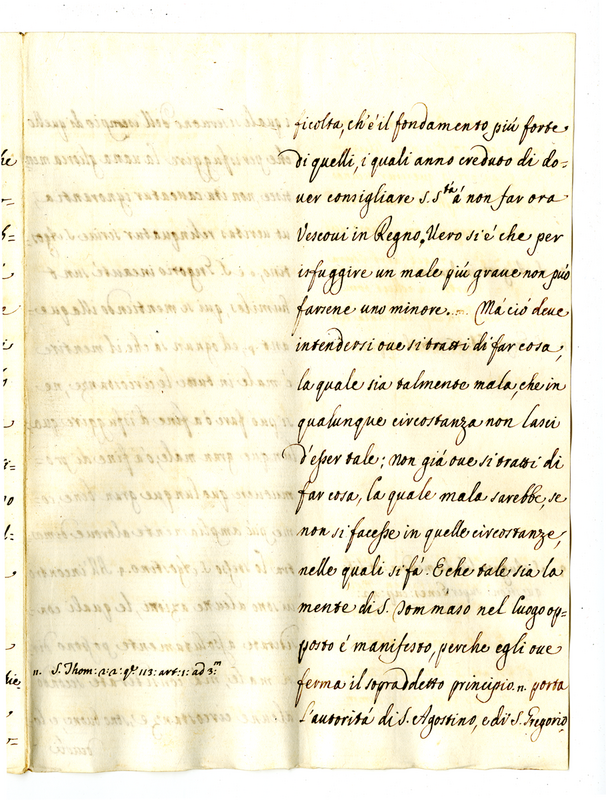 ficolta, ch'é il fondamento piú forte
di quelli, i quali anno creduto di do=
ver consigliare S. S.tá á non far ora
Vescovi in Regno. Vero si é che per
isfuggire un male piú grave non può
farsene uno minore. Má ció deve
intendersi ove si tratti di far cosa,
la quale sia talmente mala, che in
qualunque circostanza non lasci
d'esser tale; non giá ove si tratti di
far cosa, la quale mala sarebbe, se
non si facesse in quelle circostanze,
nelle quali si fá. E che tale sia la
mente di S. Tommaso nel luogo op=
posto é manifesto, perche egli ove
n. S. Thom: 2: 2: q. 113: art: 1: ad 3.m
ferma il sopraddetto principio n. porta
l'autoritá di S. Agostino, e di S. Gregorio,